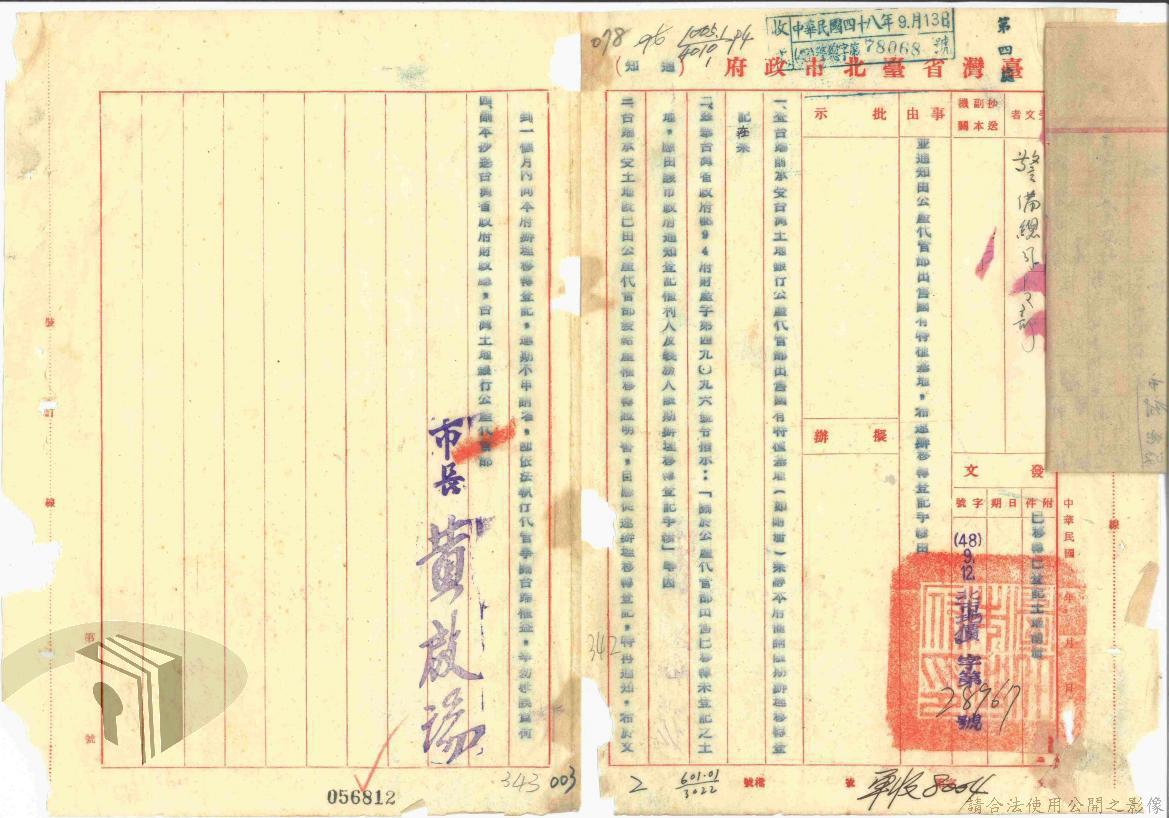 第四處
收 中華民國四十八年9月13日
字第78068號
1005.1
4010
94
96
078
臺灣省臺北市政府(通知)
受文者
警備總司令部
抄送副本機關
事由
並通知由公產代管部出售國有特種基地,希速辦移轉登記手續由
批示
擬辦
發文
附件
日期
字號
(48)9.12 北市地價字第28967號
中華民國 年 月 日
一、查台端前承受台灣土地銀行公產代管部出售國有特種基地(如附冊)業經本府催請限期辦理移轉登
記在案
二、茲奉台灣省政府48 9 4府財產字第四九〇九六號令指示:「關於公產代管部出售已移轉未登記之土
地,應由該市政府通知登記權利人及義務人限期辦理移轉登記手續」等因
三、台端承受土地既已由公產代管部發給產權移轉證明書,自應從速辦理移轉登記,特再通知,希於文
到一個月內向本府辦理移轉登記,逾期不申請者,即依法執行代管事關台端權益,幸勿忽誤為荷
四、副本抄送台灣省政府財政廳,台灣土地銀行公產代管部
市長 黃啟瑞
訂
線
線
號
第
號
342
343
003
056812
2
601.01
3022
檔號
號
軍收8004
請合法使用公開之影像